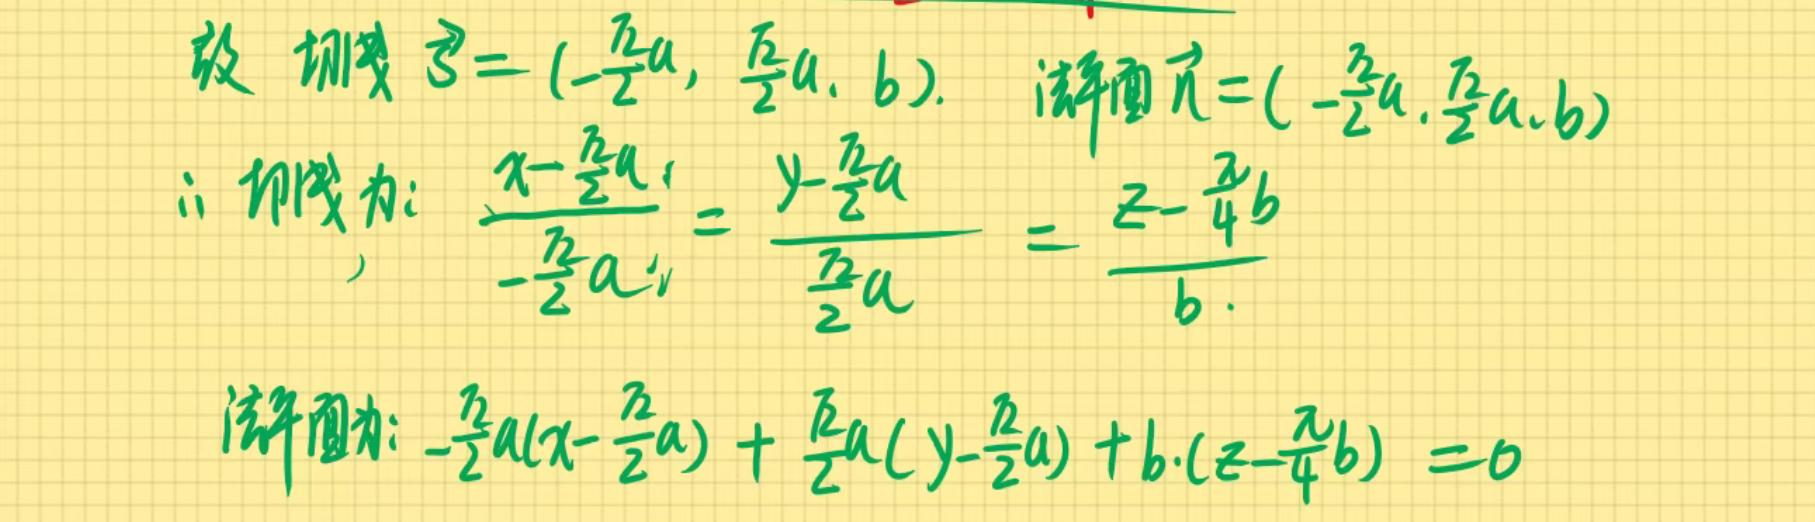 故 切线 $\vec{s}=(-\frac{\sqrt{2}}{2}a, \frac{\sqrt{2}}{2}a, b)$. 法平面 $\vec{n}=(-\frac{\sqrt{2}}{2}a, \frac{\sqrt{2}}{2}a, b)$
∴ 切线为: $\frac{x-\frac{\sqrt{2}}{2}a}{-\frac{\sqrt{2}}{2}a}=\frac{y-\frac{\sqrt{2}}{2}a}{\frac{\sqrt{2}}{2}a}=\frac{z-\frac{\pi}{4}b}{b}$.
法平面为: $-\frac{\sqrt{2}}{2}a(x-\frac{\sqrt{2}}{2}a)+\frac{\sqrt{2}}{2}a(y-\frac{\sqrt{2}}{2}a)+b\cdot(z-\frac{\pi}{4}b)=0$